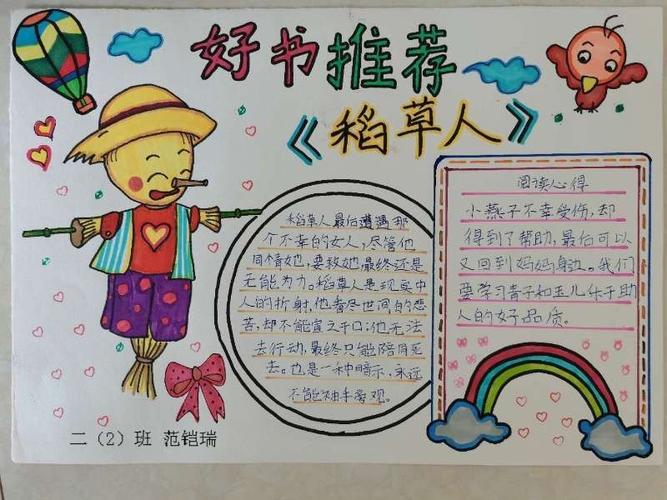 好书推荐
《稻草人》
稻草人最后遭遇那
个不幸的女人，尽管他
同情她，要救她，最终还是
无能为力。稻草人是现实中
人的折射，他看尽世间的悲
苦，却不能宣之于口；他无法
去行动，最终只能陪同死
去。也是一种暗示，永远
不能袖手旁观。
阅读心得
小燕子不幸受伤，却
得到了帮助，最后可以
又回到妈妈身边。我们
要学习青子和玉儿乐于助
人的好品质。
二（2）班 范铠瑞